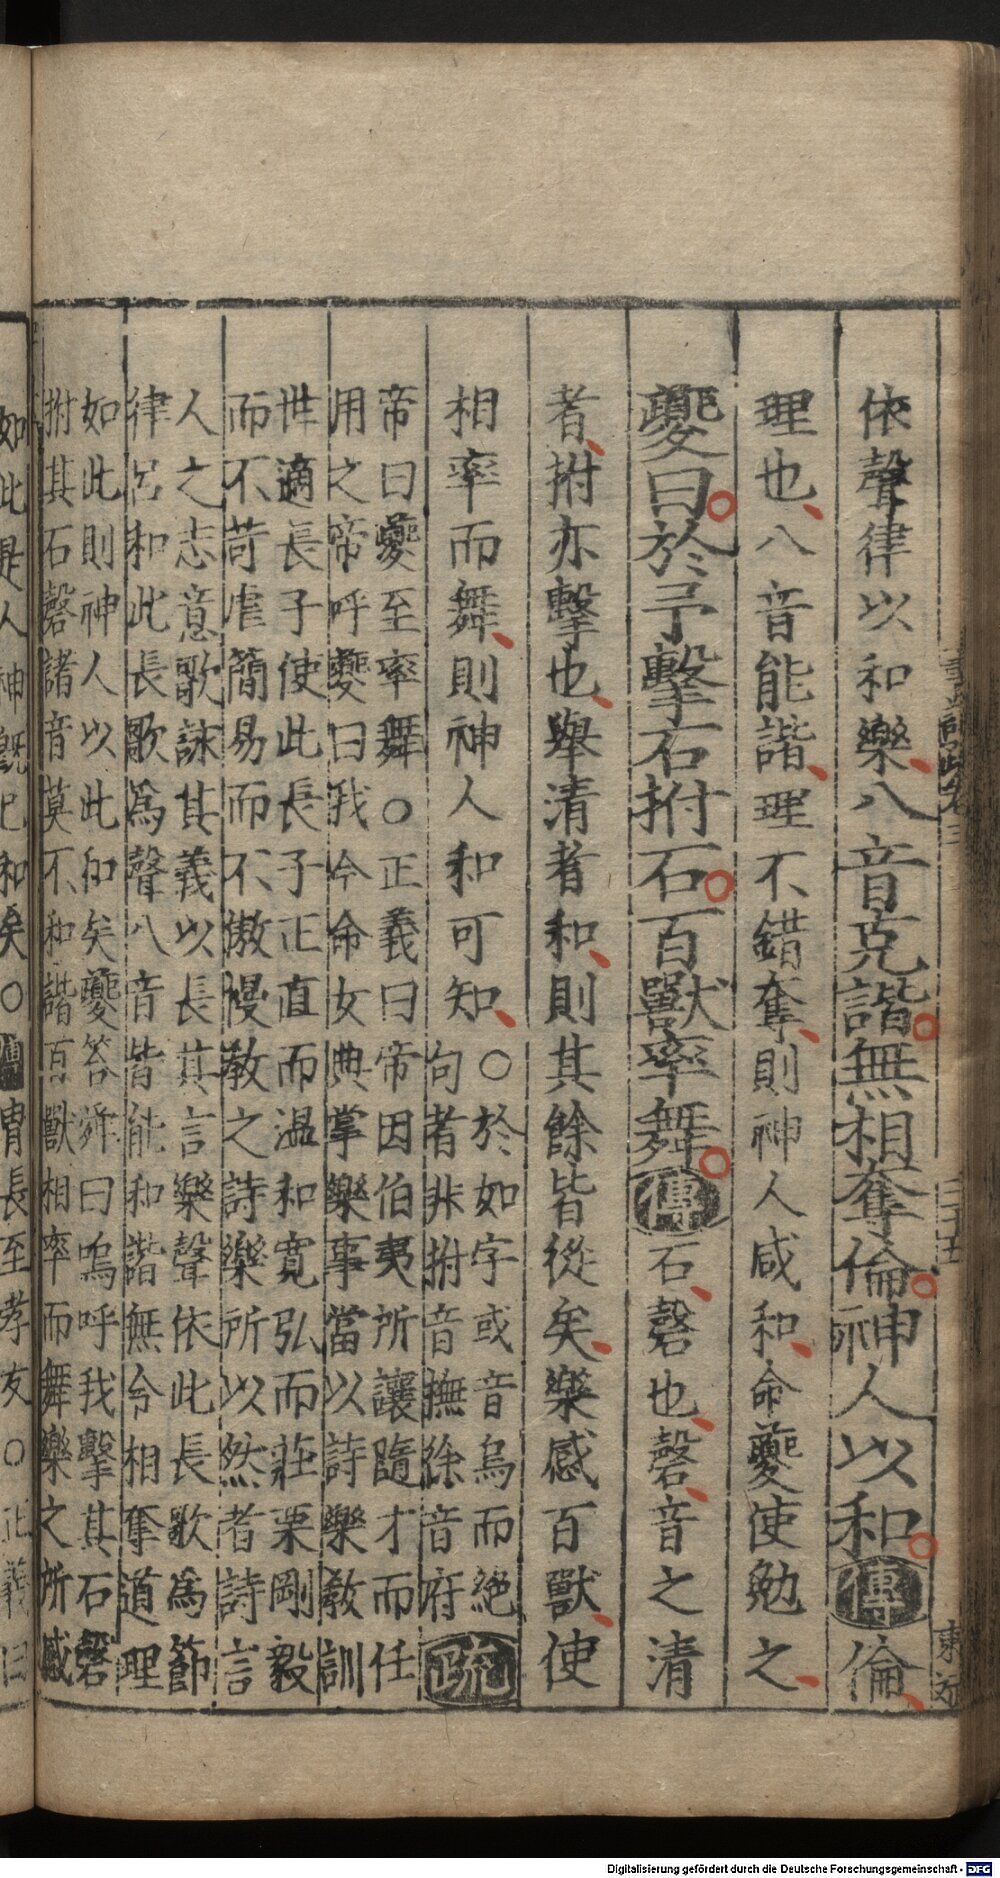 依聲律以和樂八音克諧無相奪倫神人以和傳倫
理也八音能諧理不錯奪則神人咸和命夔使勉之
夔曰於予擊石拊石百獸率舞傳石磬也磬音之清
者拊亦擊也舉清者和則其餘皆從矣樂感百獸使
相率而舞則神人和可知○於如字或音烏而絕
句者非拊音撫徐音府疏
帝曰夔至率舞○正義曰帝因伯夷所讓隨才而任
用之帝呼夔曰我今命女典掌樂事當以詩樂教訓
世適長子使此長子正直而温和寬弘而莊栗剛毅
而不苛虐簡易而不傲慢教之詩樂所以然者詩言
人之志意歌詠其義以長其言樂聲依此長歌爲節
律呂和此長歌爲聲八音皆能和諧無令相奪道理
如此則神人以此和矣夔答舜曰嗚呼我擊其石磬
拊其石磬諸音莫不和諧百獸相率而舞樂之所感
如此是人神既已和矣○傳胄長至孝友○正義曰
Digitalisierung gefördert durch die Deutsche Forschungsgemeinschaft - DFG